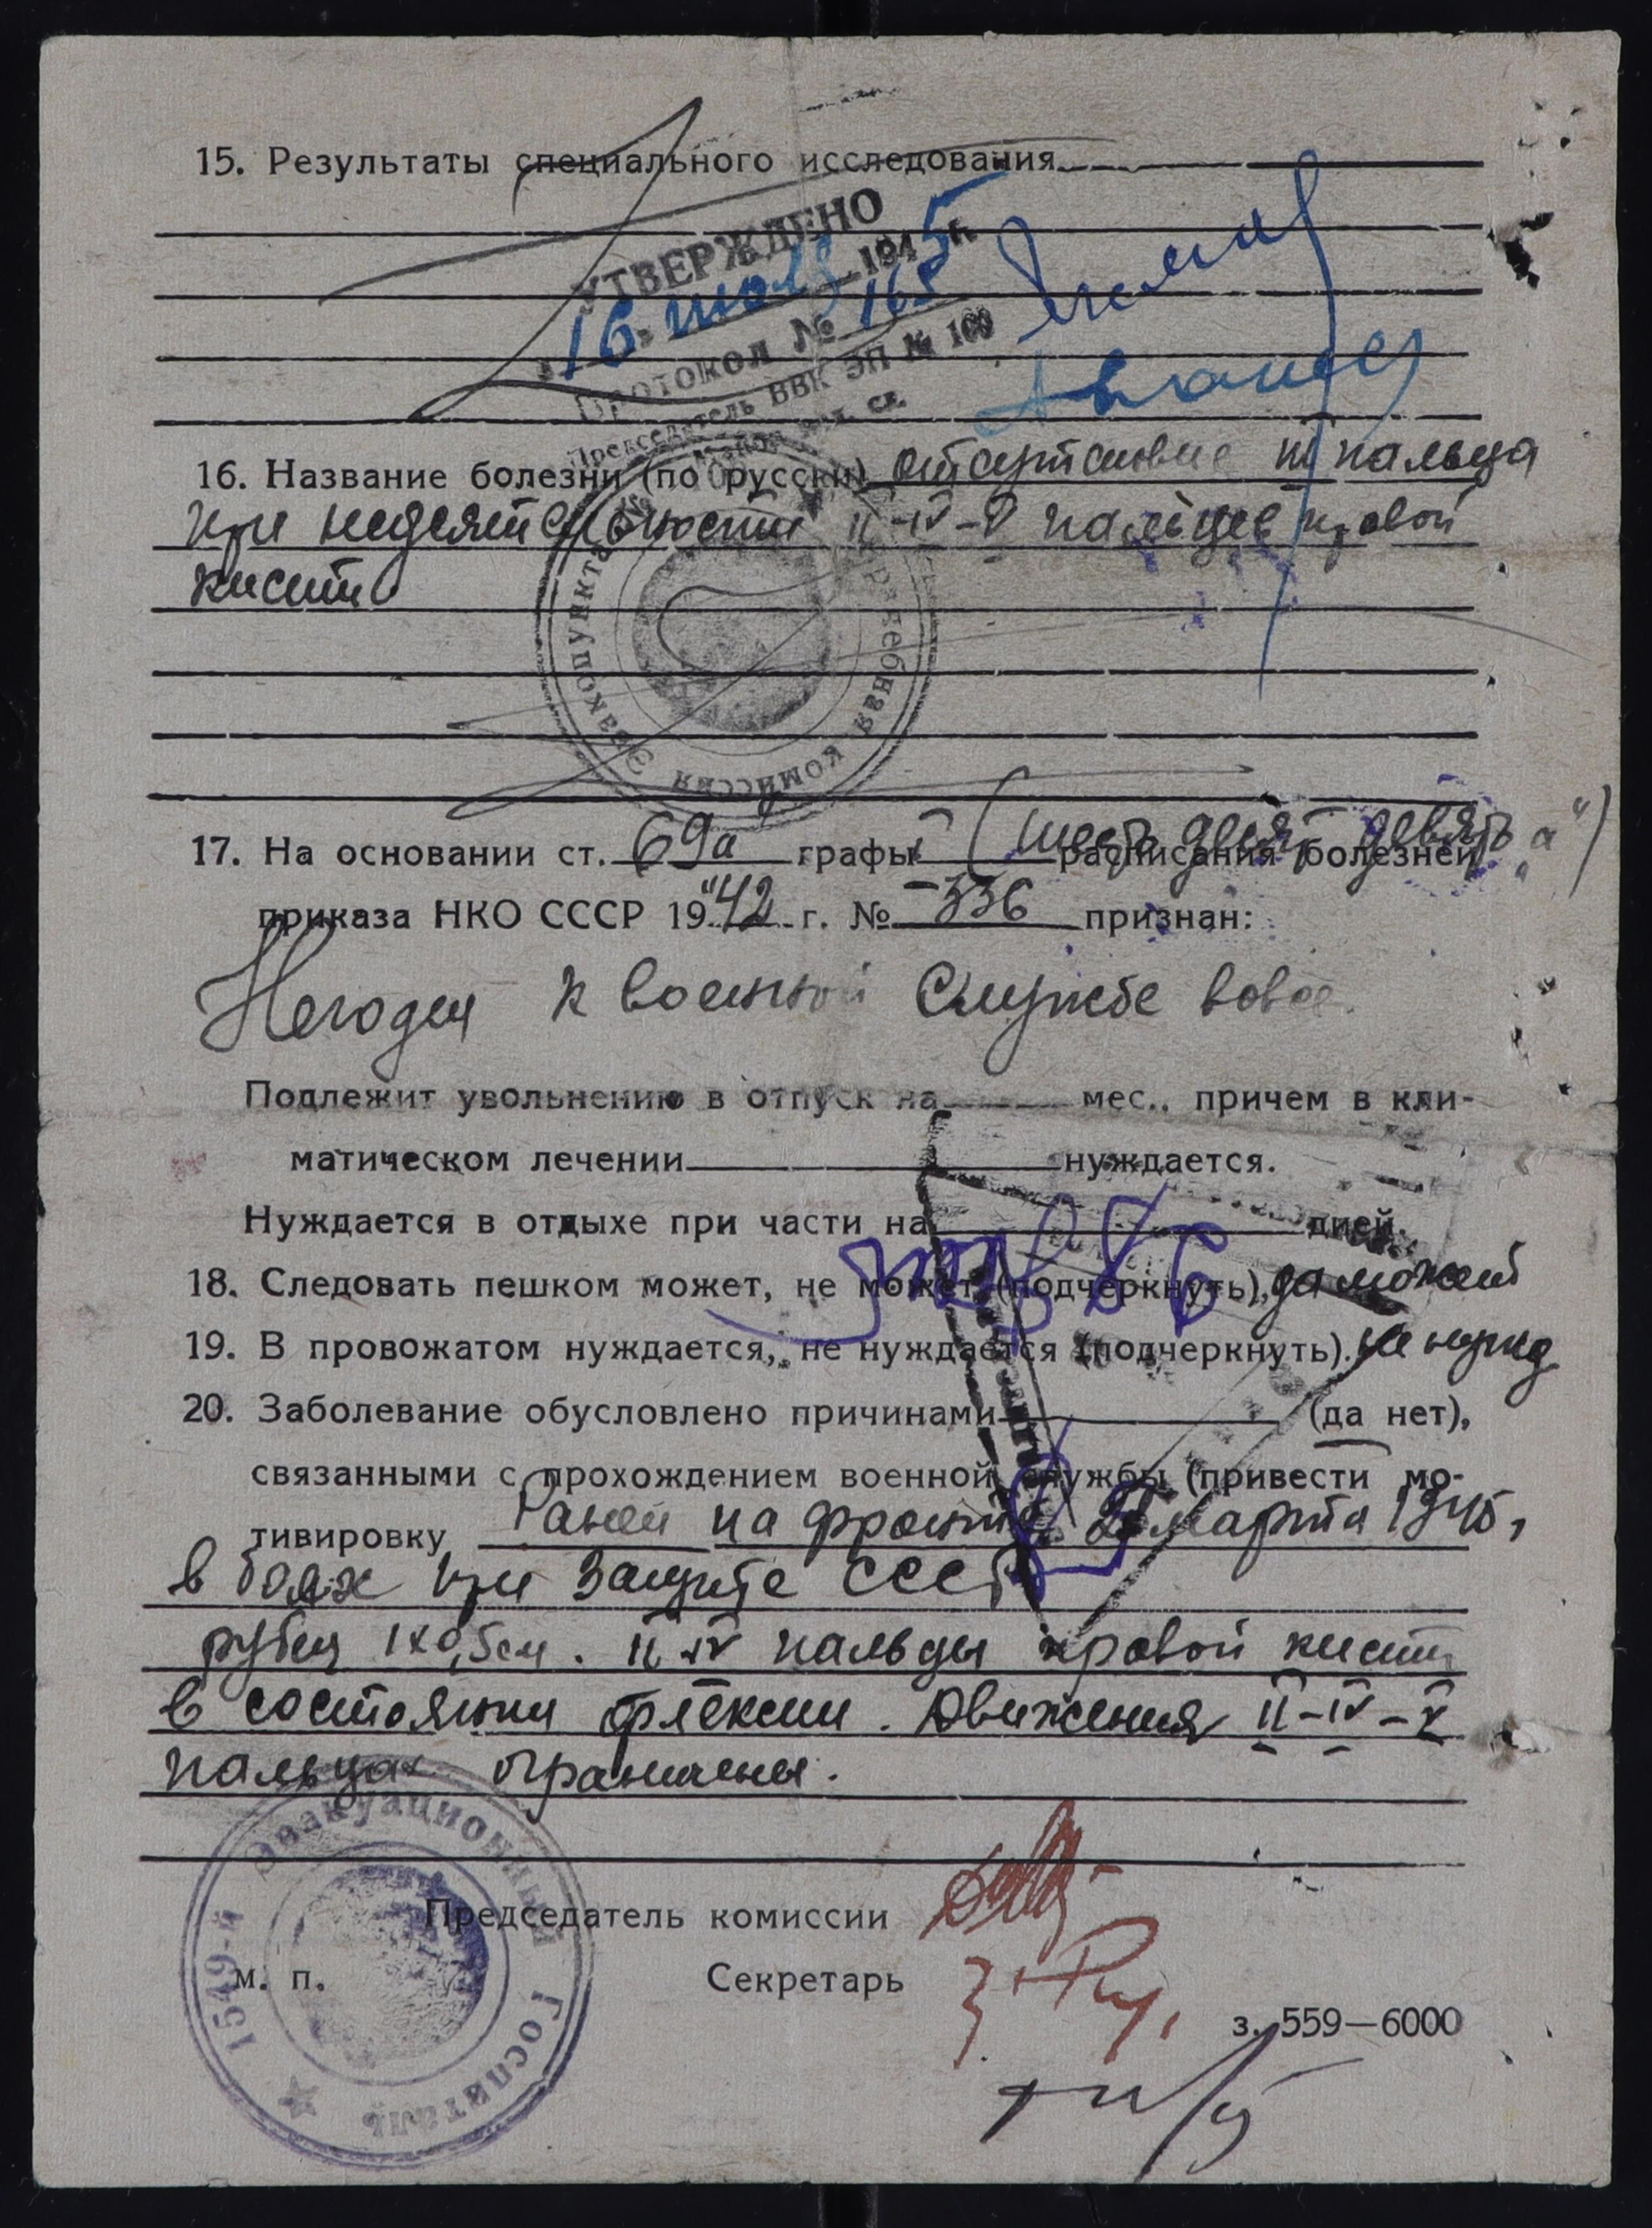 15. Результаты специального исследования
УТВЕРЖДЕНО
"16" июля 1945 г.
Протокол № 165
Председатель ВВК ЭП № 100
16. Название болезни (по русски) отсутствие III пальца
при недеятельности II-IV-V пальцев правой
кисти
врачебная комиссия Эвакопункта
17. На основании ст. 69а графы I (шестьдесят девять "а")
расписания болезней
приказа НКО СССР 1942 г. № 336 признан:
Негоден к военной службе вовсе
Подлежит увольнению в отпуск на мес., причем в кли-
матическом лечении нуждается.
Нуждается в отдыхе при части на дней.
18. Следовать пешком может, не может (подчеркнуть), да может
19. В провожатом нуждается, не нуждается (подчеркнуть). не нужд
20. Заболевание обусловлено причинами (да нет),
связанными с прохождением военной службы (привести мо-
тивировку Ранен на фронте марта 1945,
в боях при защите СССР
рубец 1x0,5см. II IV пальцы правой кисти
в состоянии флексии. Движения II-IV-V
пальцах ограничены.
1549-й Эвакуационный Госпиталь
Председатель комиссии
м. п.
Секретарь
з. 559—6000